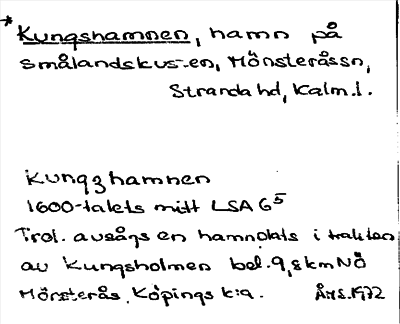 * Kungshamnen, hamn på
smålandskusten, Mönsteråssn,
Stranda hd, Kalm.l.
Kungzhamnen
1600-talets mitt LSA G5
Trol. avsågs en hamnplats i trakten
av Kungsholmen bel. 9,8 km NÖ
Mönsterås. Köpings k:a. ÅHS.1972